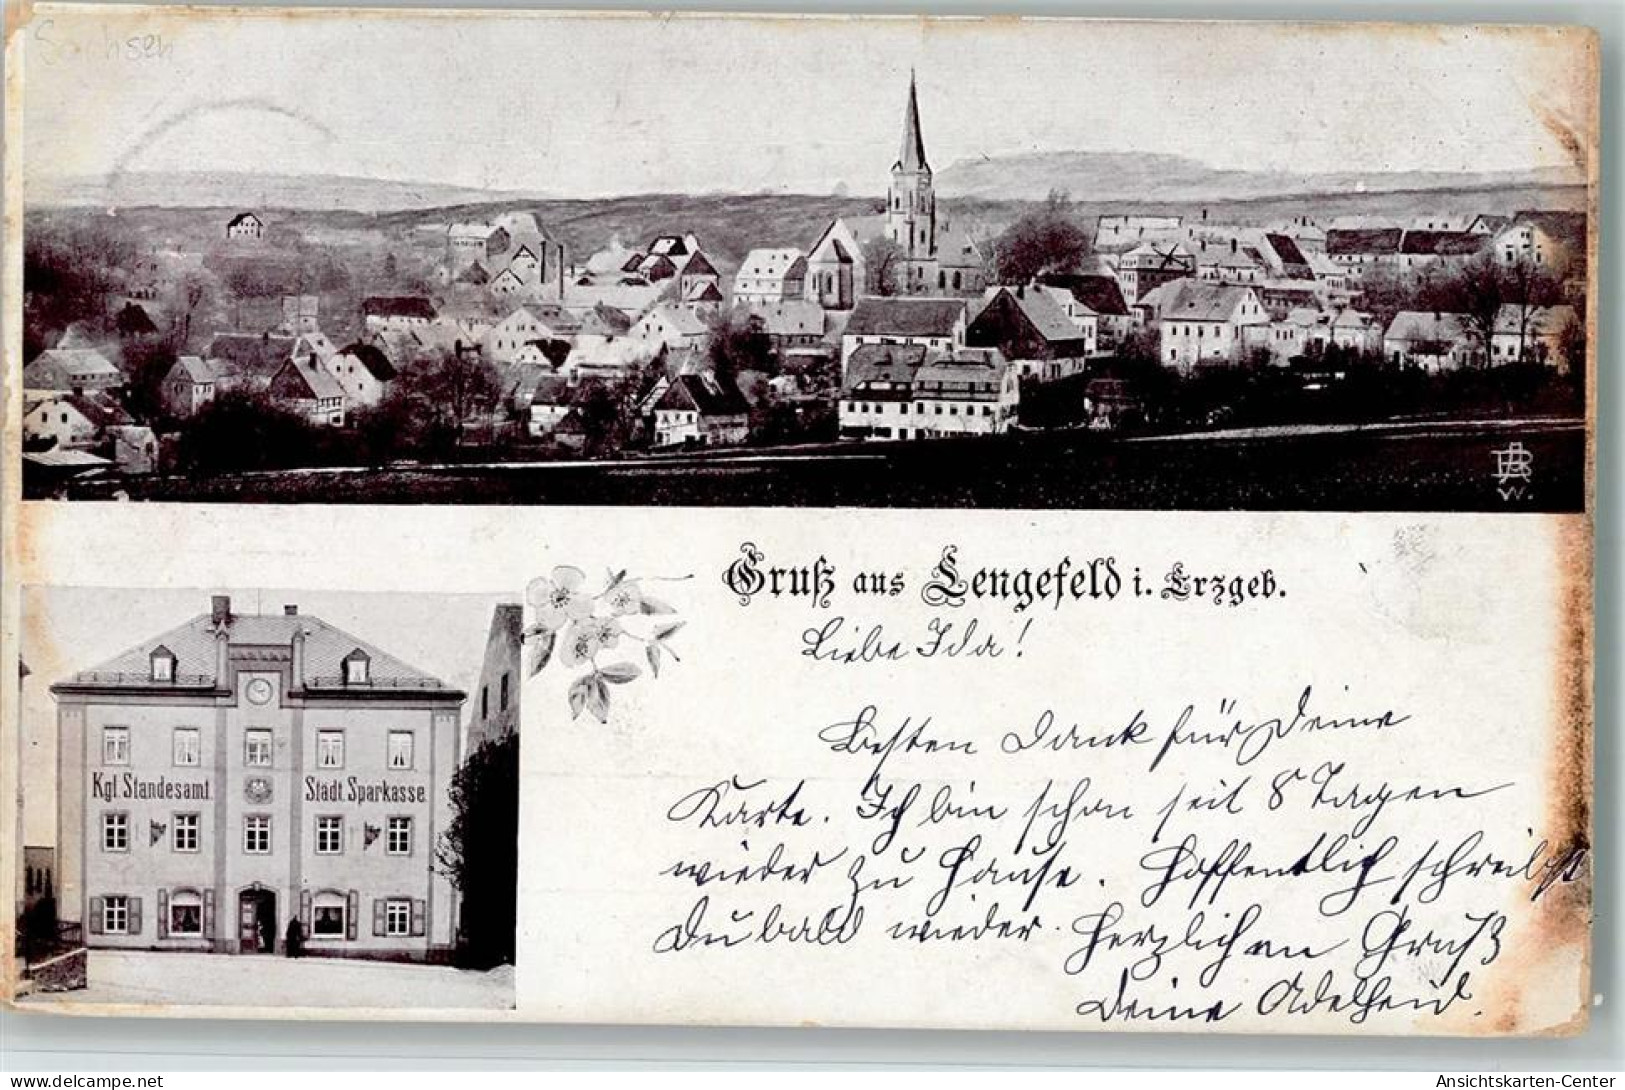 Sachsen
Gruß aus Lengefeld i. Erzgeb.
Kgl. Standesamt.
Stadt Sparkasse.
Liebe Ida!
Besten Dank für Deine
Karte. Ich bin schon seit 8 Tagen
wieder zu Hause. Hoffentlich schreibst
Du bald wieder. Herzlichen Gruß
Deine Adelheid.
www.oldthing.de
Ansichtskarten-Center